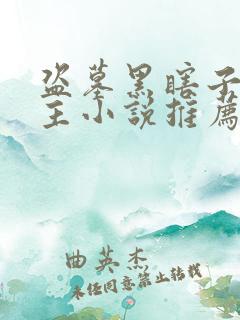 盗墓黑瞎子
主小说推薦
曲英杰
未经同意禁止转载